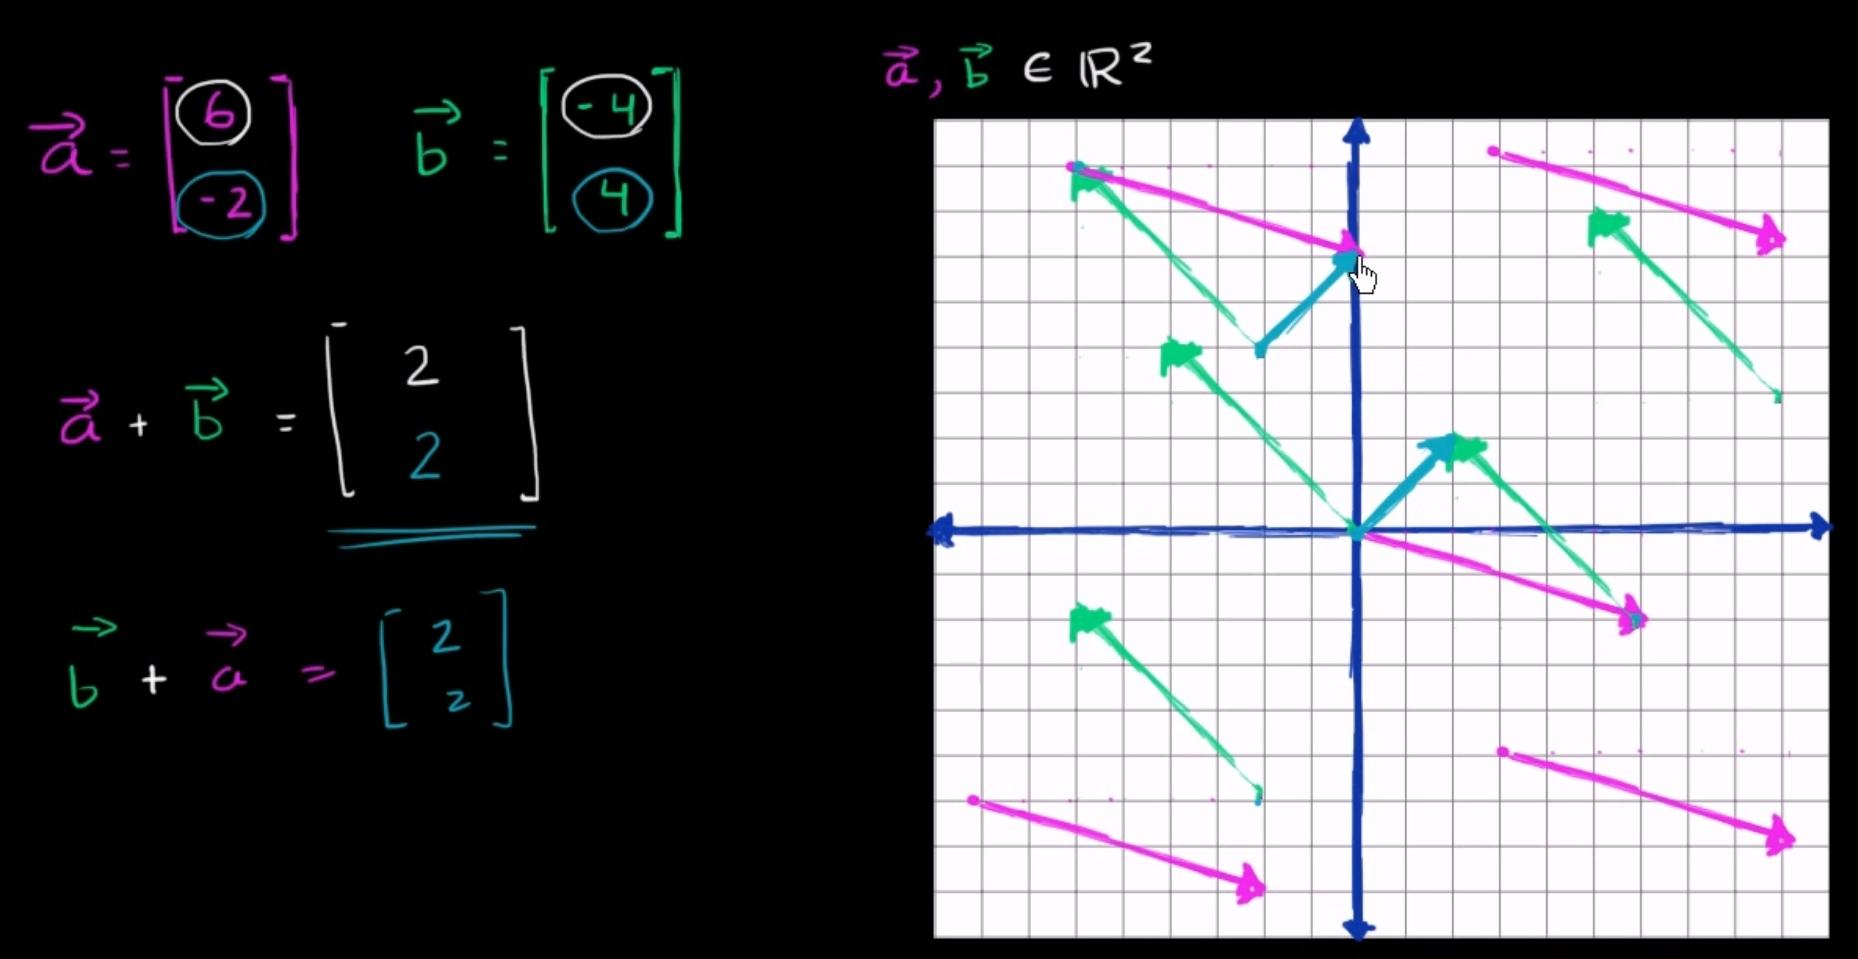 a⃗ = [6 -2] b⃗ = [-4 4]
a⃗, b⃗ ∈ ℝ²
a⃗ + b⃗ = [2 2]
b⃗ + a⃗ = [2 2]